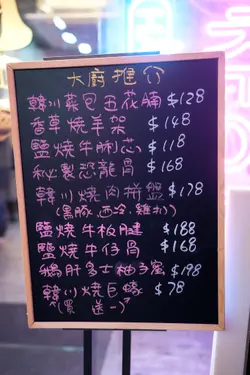 大廚推介
韓川菜包五花腩 $128
香草燒羊架 $148
鹽燒牛脷芯 $118
秘製恐龍骨 $168
韓川燒肉拼盤 $178
(黑豚、西冷、雞扒)
鹽燒牛板腱 $188
鹽燒牛仔骨 $168
鵝肝多士柚子蜜 $198
韓川燒巨蠔 $78
(買一送一)